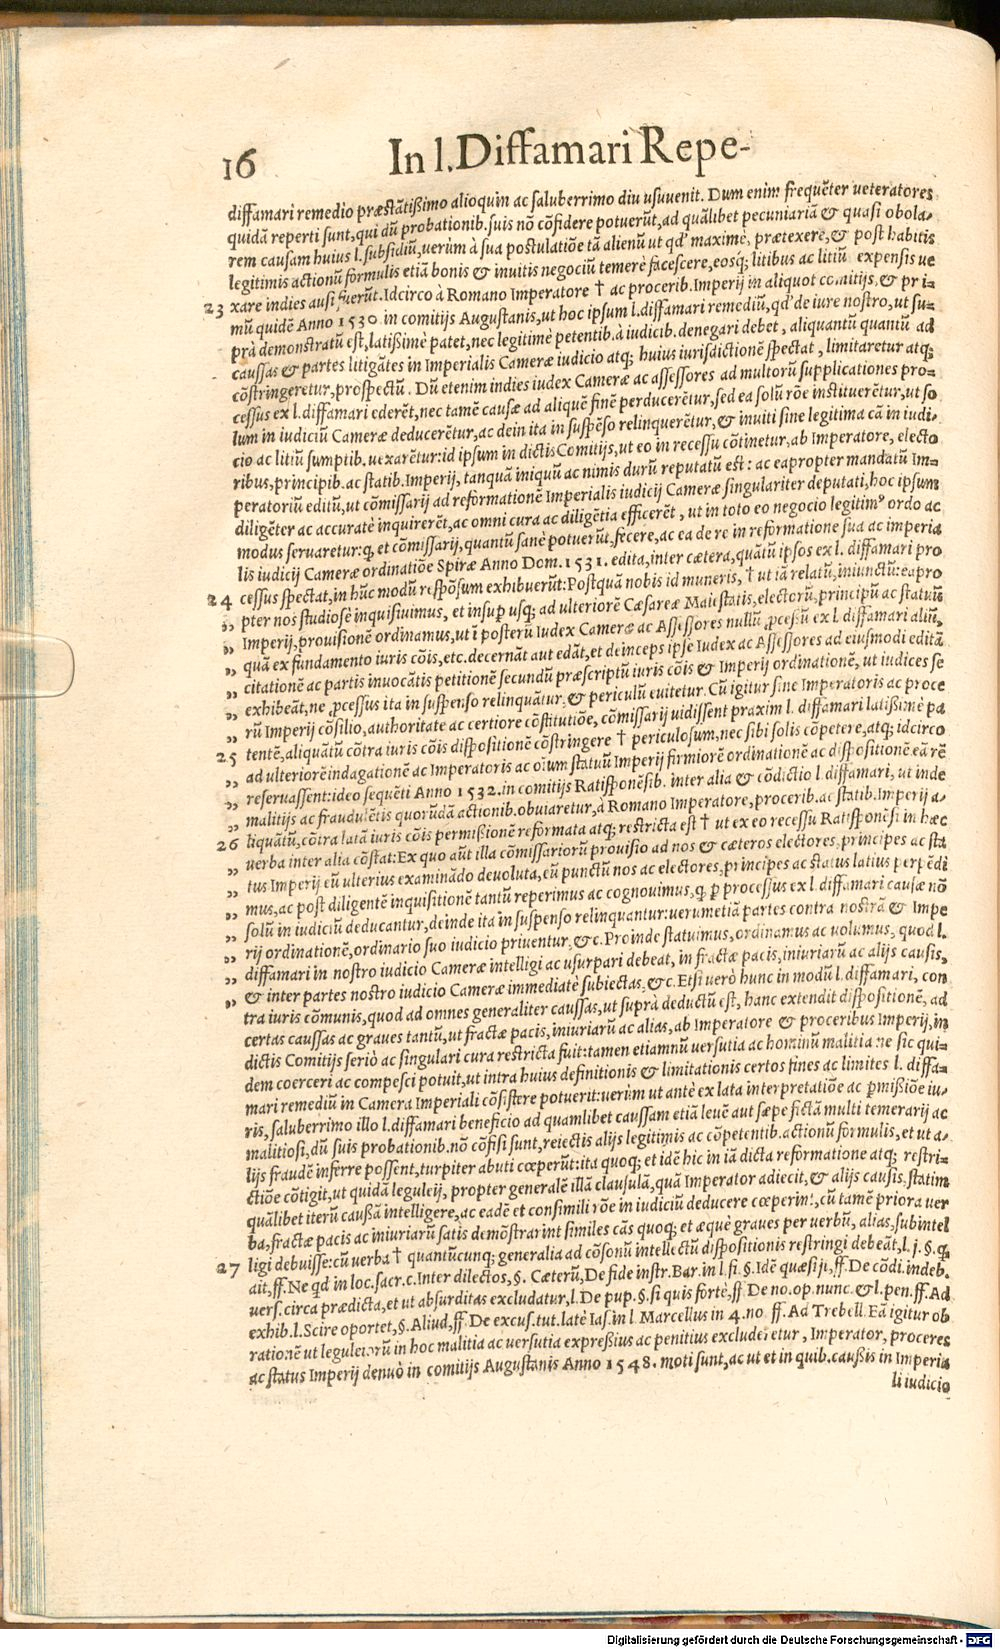 16 In l. Diffamari Repe-
diffamari remedio præstãtißimo alioquin ac saluberrimo diu usuuenit. Dum enim frequẽter ueteratores
quidã reperti sunt, qui dũ probationib. suis nõ cõfidere potuerũt, ad quãlibet pecuniariã & quasi obola-
rem causam huius l. subsidiũ, uerùm à sua postulatiõe tã alienũ ut qd' maximè, prætexere, & post habitis
legitimis actionũ formulis etiã bonis & inuitis negociũ temerè facescere, eosq; litibus ac litiũ expensis ue
23 xare indies ausi fuerũt. Idcirco à Romano Imperatore † ac procerib. Imperij in aliquot comitijs, & pri-
mũ quidẽ Anno 1530 in comitijs Augustanis, ut hoc ipsum l. diffamari remediũ, qd' de iure nostro, ut su-
prà demonstratũ est, latißimè patet, nec legitimè petentib. à iudicib. denegari debet, aliquantũ quantũ ad
caussas & partes litigãtes in Imperialis Cameræ iudicio atq; huius iurisdictionẽ spectat, limitaretur atq;
cõstringeretur, prospectũ. Dũ etenim indies iudex Cameræ ac assessores ad multorũ supplicationes pro-
cessus ex l. diffamari ederẽt, nec tamẽ causæ ad aliquẽ finẽ perducerẽtur, sed ea solũ rõe instituerẽtur, ut so
lum in iudiciũ Cameræ deducerẽtur, ac dein ita in suspẽso relinquerẽtur, & inuiti sine legitima cã in iudi-
cio ac litiũ sumptib. uexarẽtur: id ipsum in dictis Comitijs, ut eo in recessu cõtinetur, ab Imperatore, electo
ribus, principib. ac statib. Imperij, tanquã iniquũ ac nimis durũ reputatũ est: ac eapropter mandatũ Im-
peratoriũ editũ, ut cõmissarij ad reformationẽ Imperialis iudicij Cameræ singulariter deputati, hoc ipsum
diligẽter ac accuratè inquirerẽt, ac omni cura ac diligẽtia efficerẽt, ut in toto eo negocio legitimꝰ ordo ac
modus seruaretur: q, et cõmissarij, quantũ sanè potuerũt, fecere, ac ea de re in reformatione sua ac imperia
lis iudicij Cameræ ordinatiõe Spiræ Anno Dom. 1531. edita, inter cætera, quãtũ ipsos ex l. diffamari pro
24 cessus spectat, in hũc modũ respõsum exhibuerũt: Postquã nobis id muneris, † ut iã relatũ, iniunctũ: eapro
„ pter nos studiosè inquisiuimus, et insuꝑ usq; ad ulteriorẽ Cæsareæ Maiestatis, electorũ, principũ ac statuũ
„ Imperij, prouisionẽ ordinamus, ut ĩ posterũ Iudex Cameræ ac Assessores nullũ ꝓcessũ ex l. diffamari aliũ,
„ quã ex fundamento iuris cõis, etc. decernãt aut edãt, et deinceps ipse Iudex ac Assessores ad eiusmodi editã
„ citationẽ ac partis inuocãtis petitionẽ secundũ præscriptũ iuris cõis & Imperij ordinationẽ, ut iudices se
„ exhibeãt, ne ꝓcessus ita in suspenso relinquãtur, & periculũ euitetur. Cũ igitur sine Imperatoris ac proce
„ rũ Imperij cõsilio, authoritate ac certiore cõstitutiõe, cõmissarij uidissent praxim l. diffamari latißimè pa
25 tentẽ, aliquãtũ cõtra iuris cõis dispositionẽ cõstringere † periculosum, nec sibi solis cõpetere, atq; idcirco
„ ad ulteriorẽ indagationẽ ac Imperatoris ac oĩum statuũ Imperij firmiorẽ ordinationẽ ac dispositionẽ eã rẽ
„ reseruassent: ideo sequẽti Anno 1532. in comitijs Ratisponẽsib. inter alia & cõdictio l. diffamari, ut inde
„ malitijs ac fraudulẽtis quorũdã actionib. obuiaretur, à Romano Imperatore, procerib. ac statib. Imperij a-
26 liquãtũ, cõtra latã iuris cõis permißionẽ reformata atq; restricta est † ut ex eo recessu Ratisponẽsi in hæc
„ uerba inter alia cõstat: Ex quo aũt illa cõmissariorũ prouisio ad nos & cæteros electores, principes ac sta
„ tus Imperij eũ ulterius examinãdo deuoluta, eũ punctũ nos ac electores, principes ac status latius perpẽdi
„ mus, ac post diligentẽ inquisitionẽ tantũ reperimus ac cognouimus, q, ꝑ processus ex l. diffamari causæ nõ
„ solũ in iudiciũ deducantur, deinde ita in suspenso relinquantur: uerumetiã partes contra nostrã & Impe
„ rij ordinationẽ, ordinario suo iudicio priuentur, &c. Proinde statuimus, ordinamus ac uolumus, quod l.
„ diffamari in nostro iudicio Cameræ intelligi ac usurpari debeat, in fractæ pacis, iniuriarũ ac alijs causis,
„ & inter partes nostro iudicio Cameræ immediatè subiectas, &c. Etsi uerò hunc in modũ l. diffamari, con
tra iuris cõmunis, quod ad omnes generaliter caussas, ut suprà deductũ est, hanc extendit dispositionẽ, ad
certas caussas ac graues tantũ, ut fractæ pacis, iniuriarũ ac alias, ab Imperatore & proceribus Imperij, in
dictis Comitijs seriò ac singulari cura restricta fuit: tamen etiamnũ uersutia ac hominũ malitia ne sic qui-
dem coerceri ac compesci potuit, ut intra huius definitionis & limitationis certos fines ac limites l. diffa-
mari remediũ in Camera Imperiali cõsistere potuerit: uerùm ut antè ex lata interpretatiõe ac ꝑmißiõe iu-
ris, saluberrimo illo l. diffamari beneficio ad quamlibet caussam etiã leuẽ aut sæpe fictã multi temerarij ac
malitiosi, dũ suis probationib. nõ cõfisi sunt, reiectis alijs legitimis ac cõpetentib. actionũ formulis, et ut a-
lijs fraudẽ inferre possent, turpiter abuti cœperũt: ita quoq; et idẽ hic in iã dicta reformatione atq; restri-
ctiõe cõtigit, ut quidã leguleij, propter generalẽ illã clausulã, quã Imperator adiecit, & alijs causis, statim
quãlibet iterũ caußã intelligere, ac eadẽ et consimili rõe in iudiciũ deducere cœperint, cũ tamẽ priora uer
ba, fractæ pacis ac iniuriarũ satis demõstrarint similes cãs quoq; et æquè graues per uerbũ, alias, subintel
27 ligi debuisse: cũ uerba † quantũcunq; generalia ad cõsonũ intellectũ dispositionis restringi debeãt, l. j. §. q,
ait, ff. Ne qd in loc. sacr. c. Inter dilectos, §. Cæterũ, De fide instr. Bar. in l. fi. §. Idẽ quæsijt, ff. De cõdi. indeb.
uers. circa prædicta, et ut absurditas excludatur, l. De pup. §. si quis fortè, ff. De no. op. nunc. & l. pen. ff. Ad
exhib. l. Scire oportet, §. Aliud, ff. De excus. tut. latè Ias. in l. Marcellus in 4. no. ff. Ad Trebell. Eã igitur ob
rationẽ ut leguleiorũ in hoc malitia ac uersutia expreßius ac penitius excluderetur, Imperator, proceres
ac status Imperij denuò in comitijs Augustanis Anno 1548. moti sunt, ac ut et in quib. caußis in Imperia
li iudicio
Digitalisierung gefördert durch die Deutsche Forschungsgemeinschaft - DFG